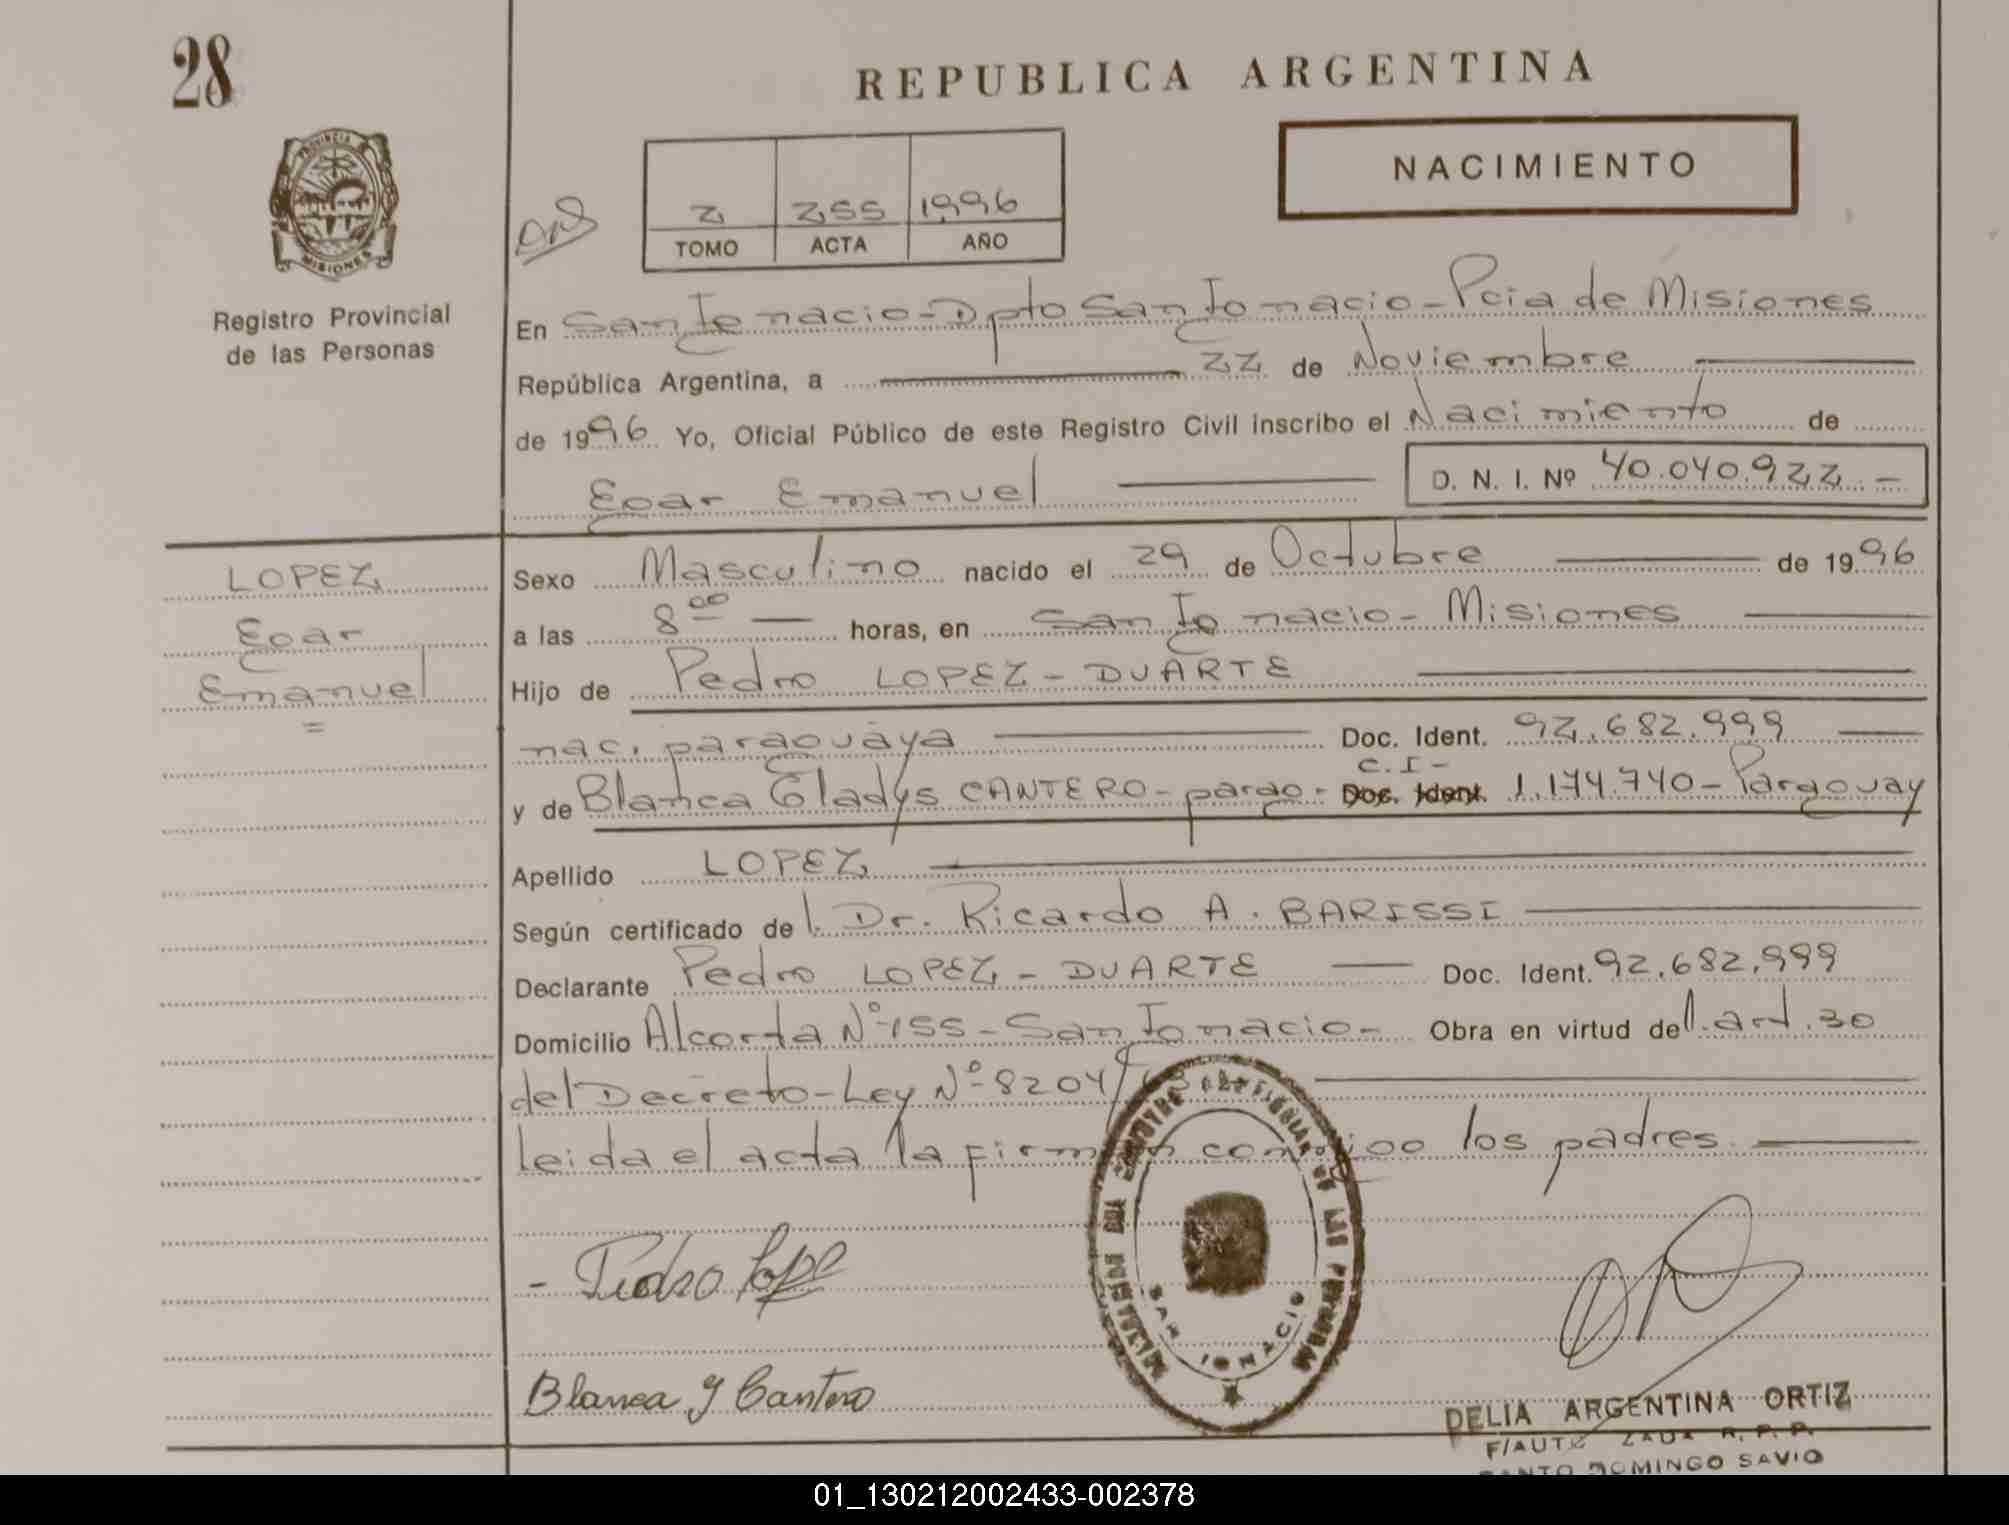 28
REPUBLICA ARGENTINA
PROVINCIA DE
MISIONES
NACIMIENTO
2 255 1996
TOMO ACTA AÑO
Registro Provincial
de las Personas
En San Ignacio - Dpto San Ignacio - Pcia de Misiones
República Argentina, a 22 de Noviembre
de 1996 Yo, Oficial Público de este Registro Civil inscribo el Nacimiento de
Egar Emanuel D. N. I. Nº 40.040.922.-
LOPEZ
Egar
Emanuel
=
Sexo Masculino nacido el 29 de Octubre de 1996
a las 8 00 horas, en San Ignacio - Misiones
Hijo de Pedro LOPEZ - DUARTE
nac. paraguaya Doc. Ident. 92.682.999
C.I-
y de Blanca Gladys CANTERO - parag - Doc. Ident. 1.174.740 - Paraguay
Apellido LOPEZ
Según certificado del Dr. Ricardo A. BARISSI
Declarante Pedro LOPEZ - DUARTE Doc. Ident. 92.682.999
Domicilio Alcorta Nº 155 - San Ignacio - Obra en virtud del art. 30
del Decreto - Ley Nº 8204/63
leida el acta la firman conmigo los padres.
- Pedro Lope
SAN IGNACIO
Blanca g Cantero
DELIA ARGENTINA ORTIZ
R. P. P.
SANTO DOMINGO SAVIO
01_130212002433-002378